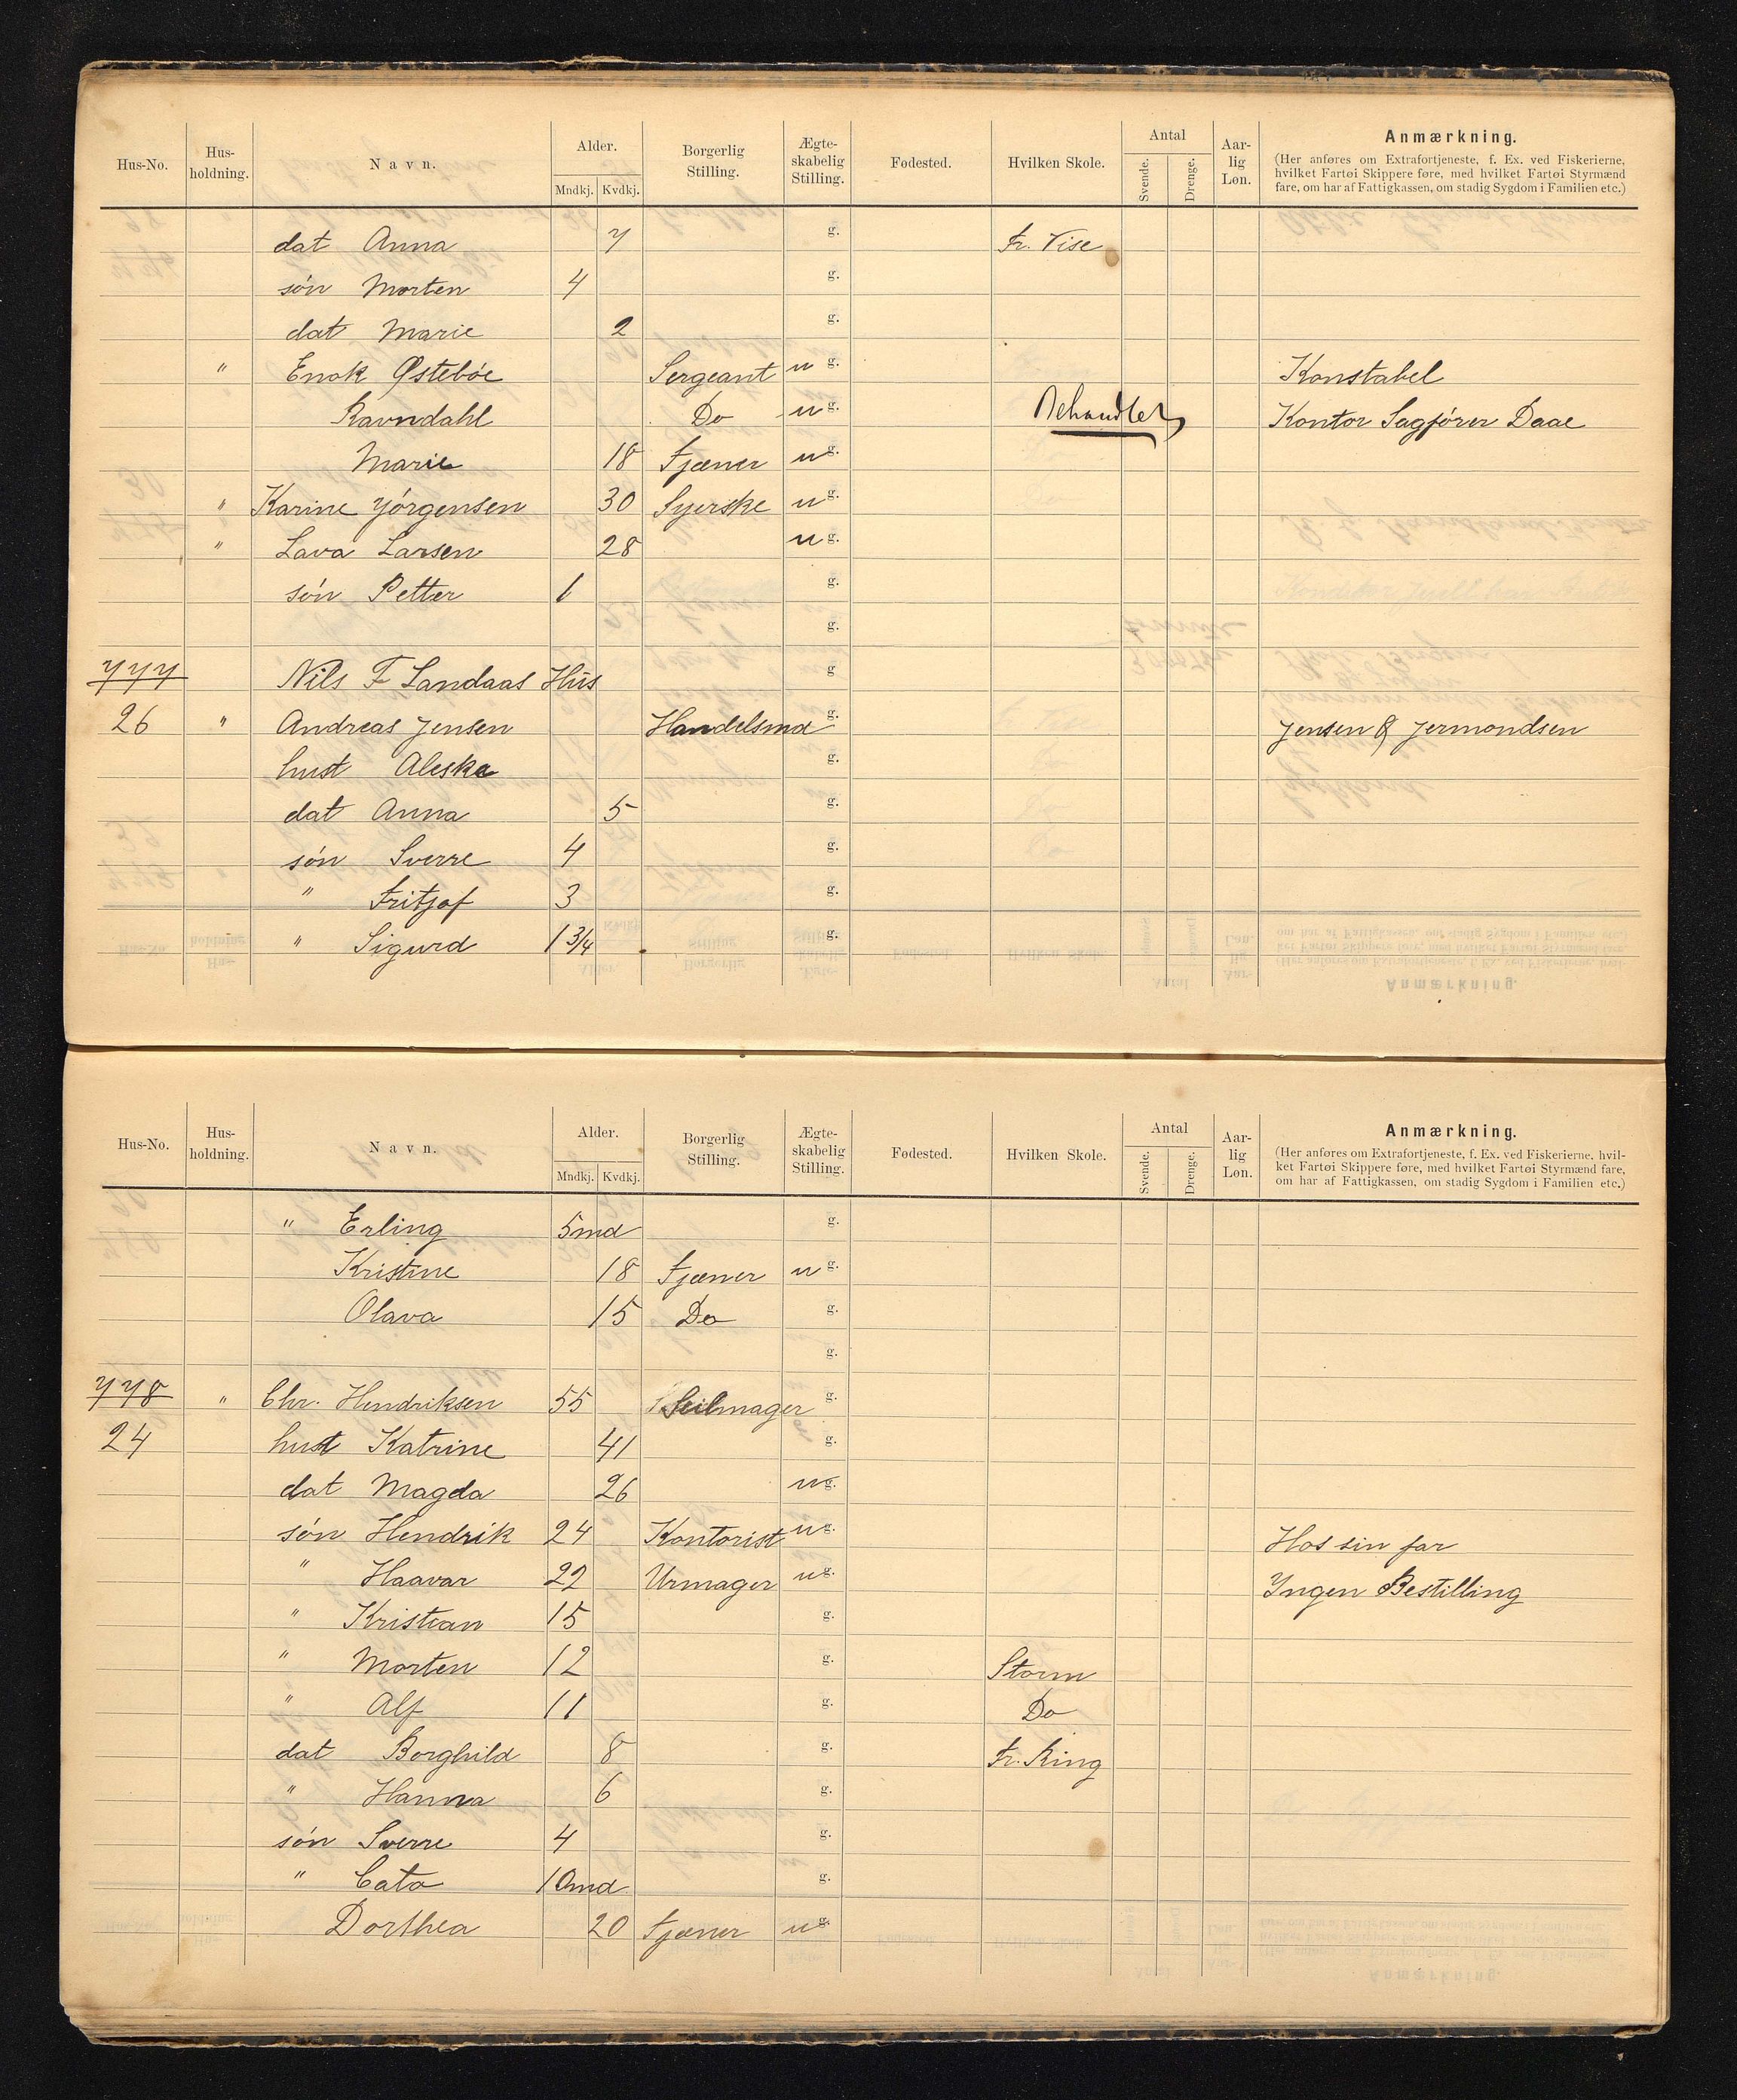 Hus-No. Hus-holdning. Navn. Alder. Mndkj. Kvdkj. Borgerlig Stilling. Ægte-skabelig Stilling. Fødested. Hvilken Skole. Antal Svende. Drenge. Aar-lig Løn. Anmærkning.
(Her anføres om Extrafortjeneste, f. Ex. ved Fiskerierne,
hvilket Fartøi Skippere føre, med hvilket Fartøi Styrmænd
fare, om har af Fattigkassen, om stadig Sygdom i Familien etc.)
dat Anna 7 g. Fr. Vise
søn Morten 4 g.
dat Marie 2 g.
" Enok Østebøe Sergeant u g. Konstabel
Ravndahl Do u g. Behandlet Kontor Sagfører Daae
Marie 18 Tjener u g.
" Karine Jörgensen 30 Syerske u g.
" Lava Larsen 28 u g.
søn Petter 1 g.
g.
777 Nils F Landaas Hus g
26 " Andreas Jensen Handelsmd g. Jensen & Jermondsen
hust Aleska g.
dat Anna 5 g.
søn Sverre 4 g.
" Fritjof 3 g.
" Sigurd 1 3/4 g.
Hus-No. Hus-holdning. Navn. Alder. Mndkj. Kvdkj. Borgerlig Stilling. Ægte-skabelig Stilling. Fødested. Hvilken Skole. Antal Svende. Drenge. Aar-lig Løn. Anmærkning.
(Her anføres om Extrafortjeneste, f. Ex. ved Fiskerierne, hvil-
ket Fartøi Skippere føre, med hvilket Fartøi Styrmænd fare,
om har af Fattigkassen, om stadig Sygdom i Familien etc.)
" Erling 5md g.
Kristine 18 Tjener u g.
Olava 15 Do g.
g.
778 " Chr. Hendriksen 55 Seilmager g.
24 hust Katrine 41 g.
dat Magda 26 u g.
søn Hendrik 24 Kontorist u g. Hos sin far
" Haavar 22 Urmager u g. Yngen Bestilling
" Kristian 15 g.
" Morten 12 g. Storm
" Alf 11 g. Do
dat Borghild 8 g. Fr. Ring
" Hanna 6 g.
søn Sverre 4 g.
" Cato 10md g.
Dorthea 20 Tjener u g.